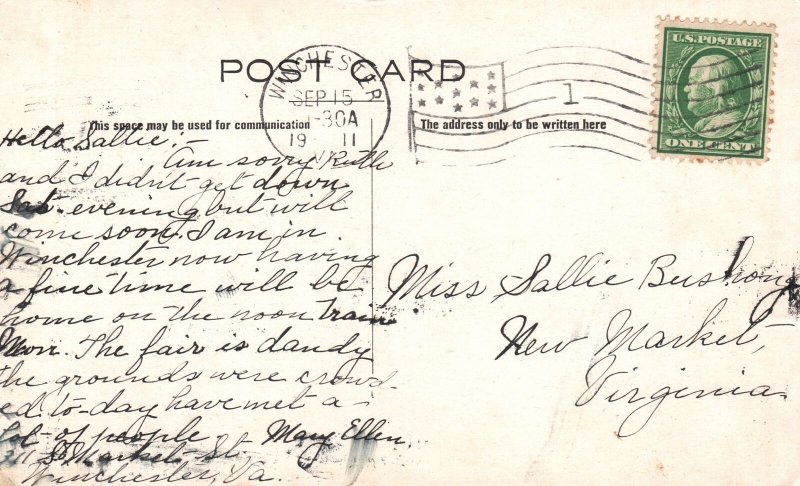 POST CARD
WINCHESTER
SEP 15
-30A
19 11
VA.
1
U.S. POSTAGE
ONE CENT
This space may be used for communication
The address only to be written here
Hello Sallie:—
Am sorry Ruth
and I didn't get down
Sat. evening but will
come soon. I am in
Winchester now having
a fine time will be
home on the noon train
Mon. The fair is dandy
the grounds were crowd-
ed to-day have met a
lot of people Mary Ellen.
So Market St.
Winchester, Va.
Miss Sallie Bushong
New Market,
Virginia